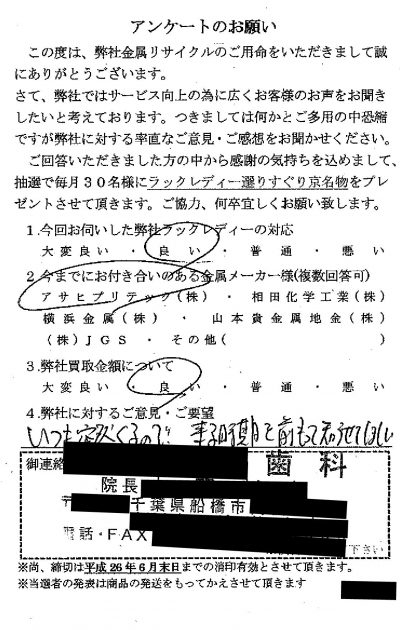 アンケートのお願い
この度は、弊社金属リサイクルのご用命をいただきまして誠
にありがとうございます。
さて、弊社ではサービス向上の為に広くお客様のお声をお聞き
したいと考えております。つきましては何かとご多用の中恐縮
ですが弊社に対する率直なご意見・ご感想をお聞かせください。
ご回答いただきました方の中から感謝の気持ちを込めまして、
抽選で毎月30名様にラックレディー選りすぐり京名物をプレ
ゼントさせて頂きます。ご協力、何卒宜しくお願い致します。
1.今回お伺いした弊社ラックレディーの対応
大変良い ・ 良い ・ 普通 ・ 悪い
2.今までにお付き合いのある金属メーカー様(複数回答可)
アサヒプリテック(株) ・ 相田化学工業(株)
横浜金属(株) ・ 山本貴金属地金(株)
(株)JGS ・ その他( )
3.弊社買取金額について
大変良い ・ 良い ・ 普通 ・ 悪い
4.弊社に対するご意見・ご要望
いつも突然くるので 来る時期を前もって知らせてほしい
御連絡 歯科
院長
〒 千葉県船橋市
電話・FAX
下さい
※尚、締切は平成26年6月末日までの消印有効とさせて頂きます。
※当選者の発表は商品の発送をもってかえさせて頂きます